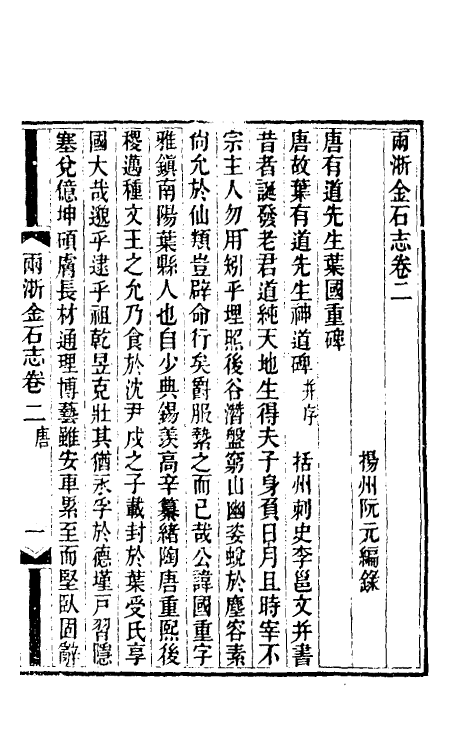 兩浙金石志卷二
揚州阮元編錄
唐有道先生葉國重碑
唐故葉有道先生神道碑并序 括州刺史李邕文并書
昔者誕發老君道純天地生得夫子身負日月且時宰不
宗主人勿用矧乎埋照後谷潛盤窮山幽姿蛻於塵容素
尚允於仙類豈辟命行矣爵服縶之而已哉公諱國重字
雅鎮南陽葉縣人也自少典錫羡高辛纂緒陶唐重熙後
稷邁種文王之允乃食於沈尹戍之子載封於葉受氏享
國大哉邈乎逮乎祖乾昱克壯其猶永孚於德墐戸習隱
塞兌億坤碩膚長材通理博藝雖安車累至而堅臥固辭
兩浙金石志卷二 唐 一